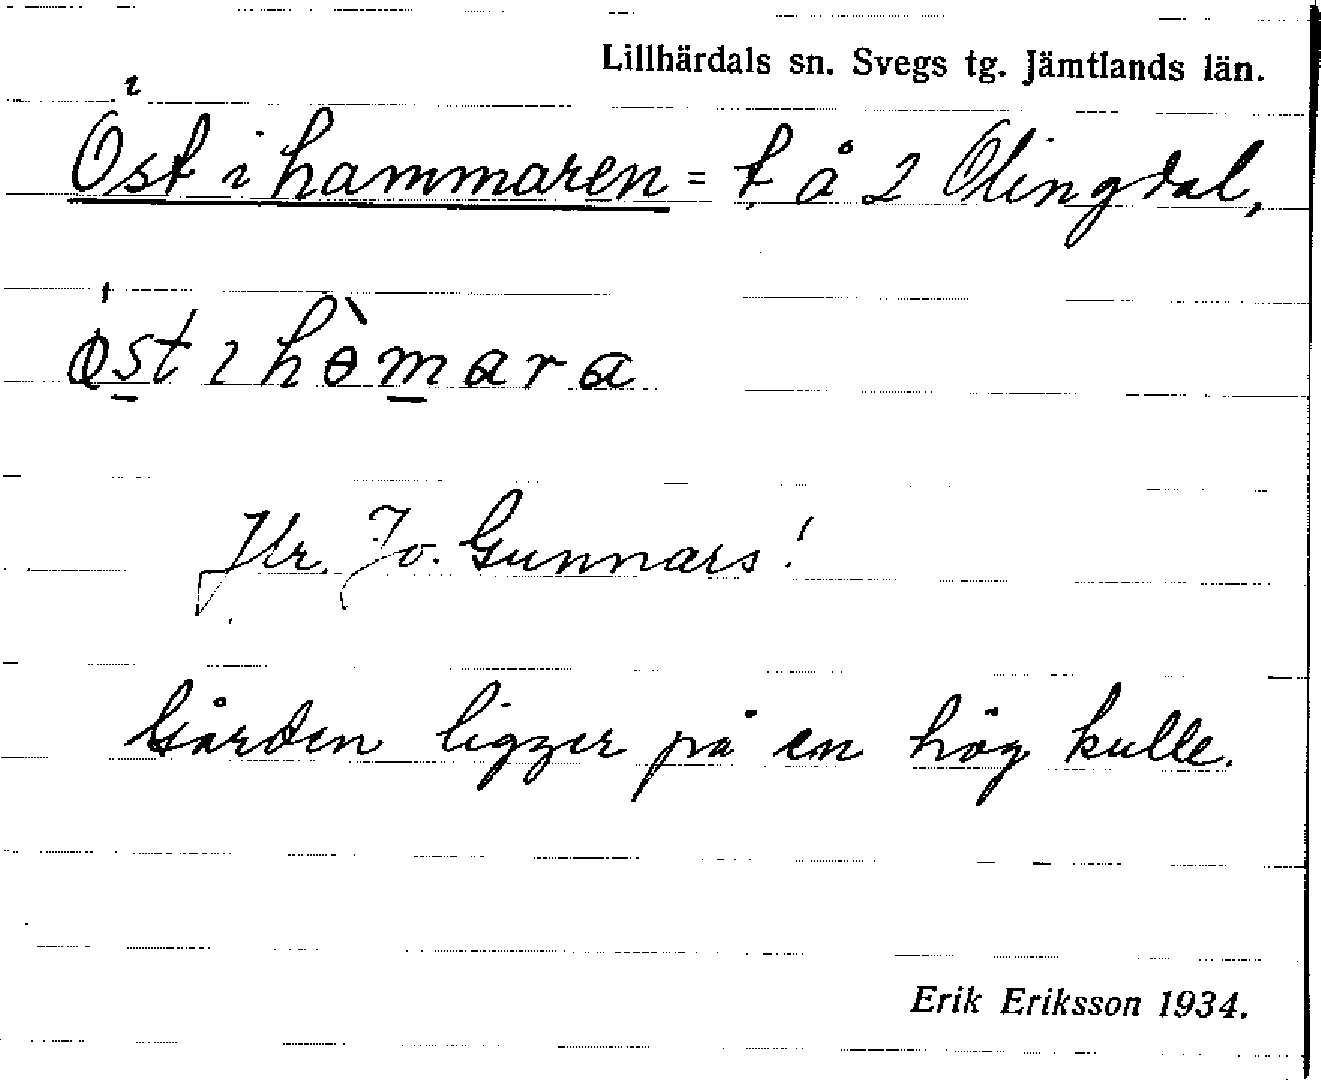 Lillhärdals sn. Svegs tg. Jämtlands län.
Öst i hammaren = t å 2 Olingdal,
ɵ́st ɩ hɵ̀mara
Jo. Gunnars!
Gården ligger på en hög kulle.
Erik Eriksson 1934.